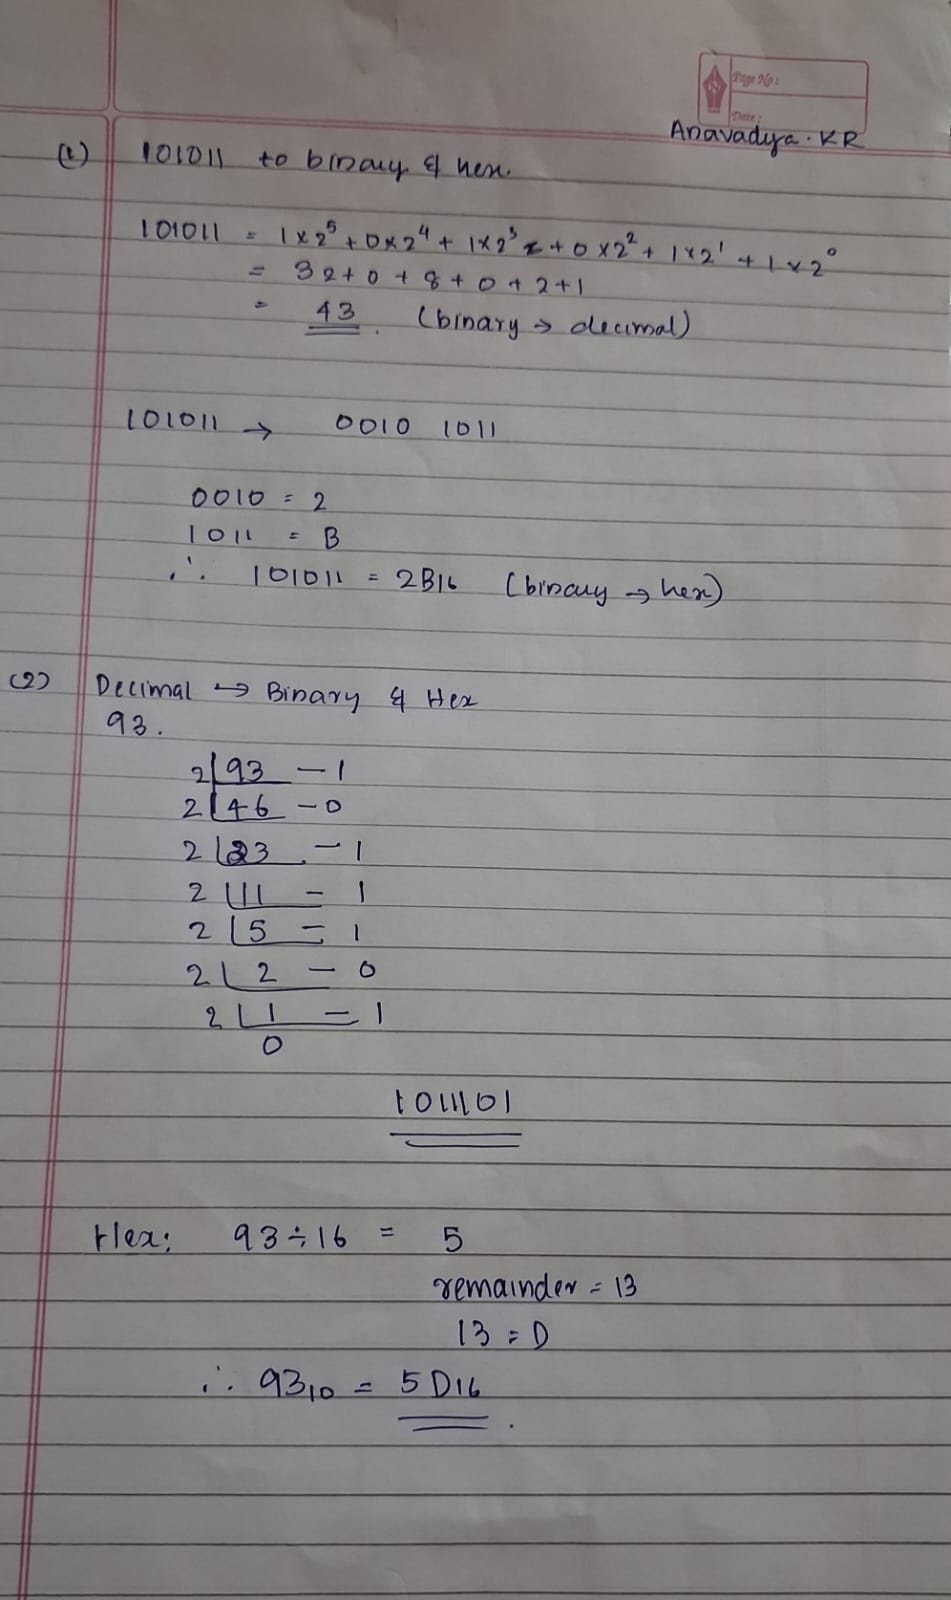 Page No:
Date:
Anavadya. KR
(1) 101011 to binary & hex.
101011 = 1x2⁵ + 0x2⁴ + 1x2³ + 0x2² + 1x2¹ + 1x2⁰
= 32+0+8+0+2+1
= 43. (binary → decimal)
101011 → 0010 1011
0010 = 2
1011 = B
∴ 101011 = 2B16 (binary → hex)
(2) Decimal → Binary & Hex
93.
2 93 - 1
2 46 - 0
2 23 - 1
2 11 - 1
2 5 - 1
2 2 - 0
2 1 - 1
0
1011101
Hex: 93 ÷ 16 = 5
remainder = 13
13 = D
∴ 93₁₀ = 5D16.